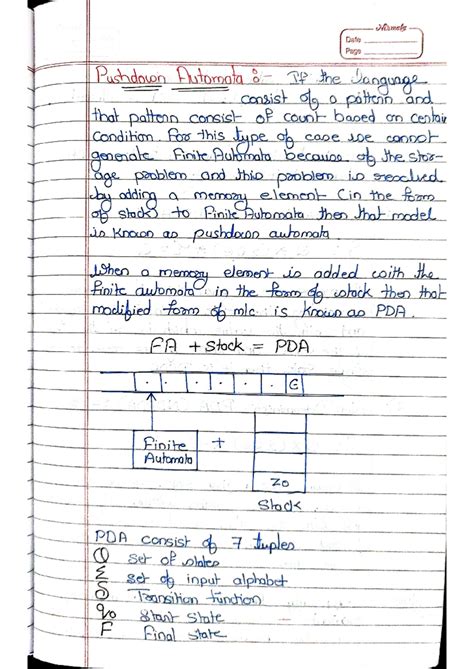 Nirmals
Date
Page
Pushdown Automata :- If the language
consist of a pattern and
that pattern consist of count based on certain
condition for this type of case we cannot
generate Finite Automata because of the stor-
age problem and this problem is resolved
by adding a memory element (in the form
of stack) to Finite Automata then that model
is known as pushdown automata
When a memory element is added with the
finite automata in the form of stack then that
modified form of m/c is known as PDA.
FA + Stack = PDA
. . . . . . E
Finite + 
Automata
Z0
Stack
PDA consist of 7 tuples
Q set of states
Σ set of input alphabet
δ Transition function
q0 Start State
F Final state